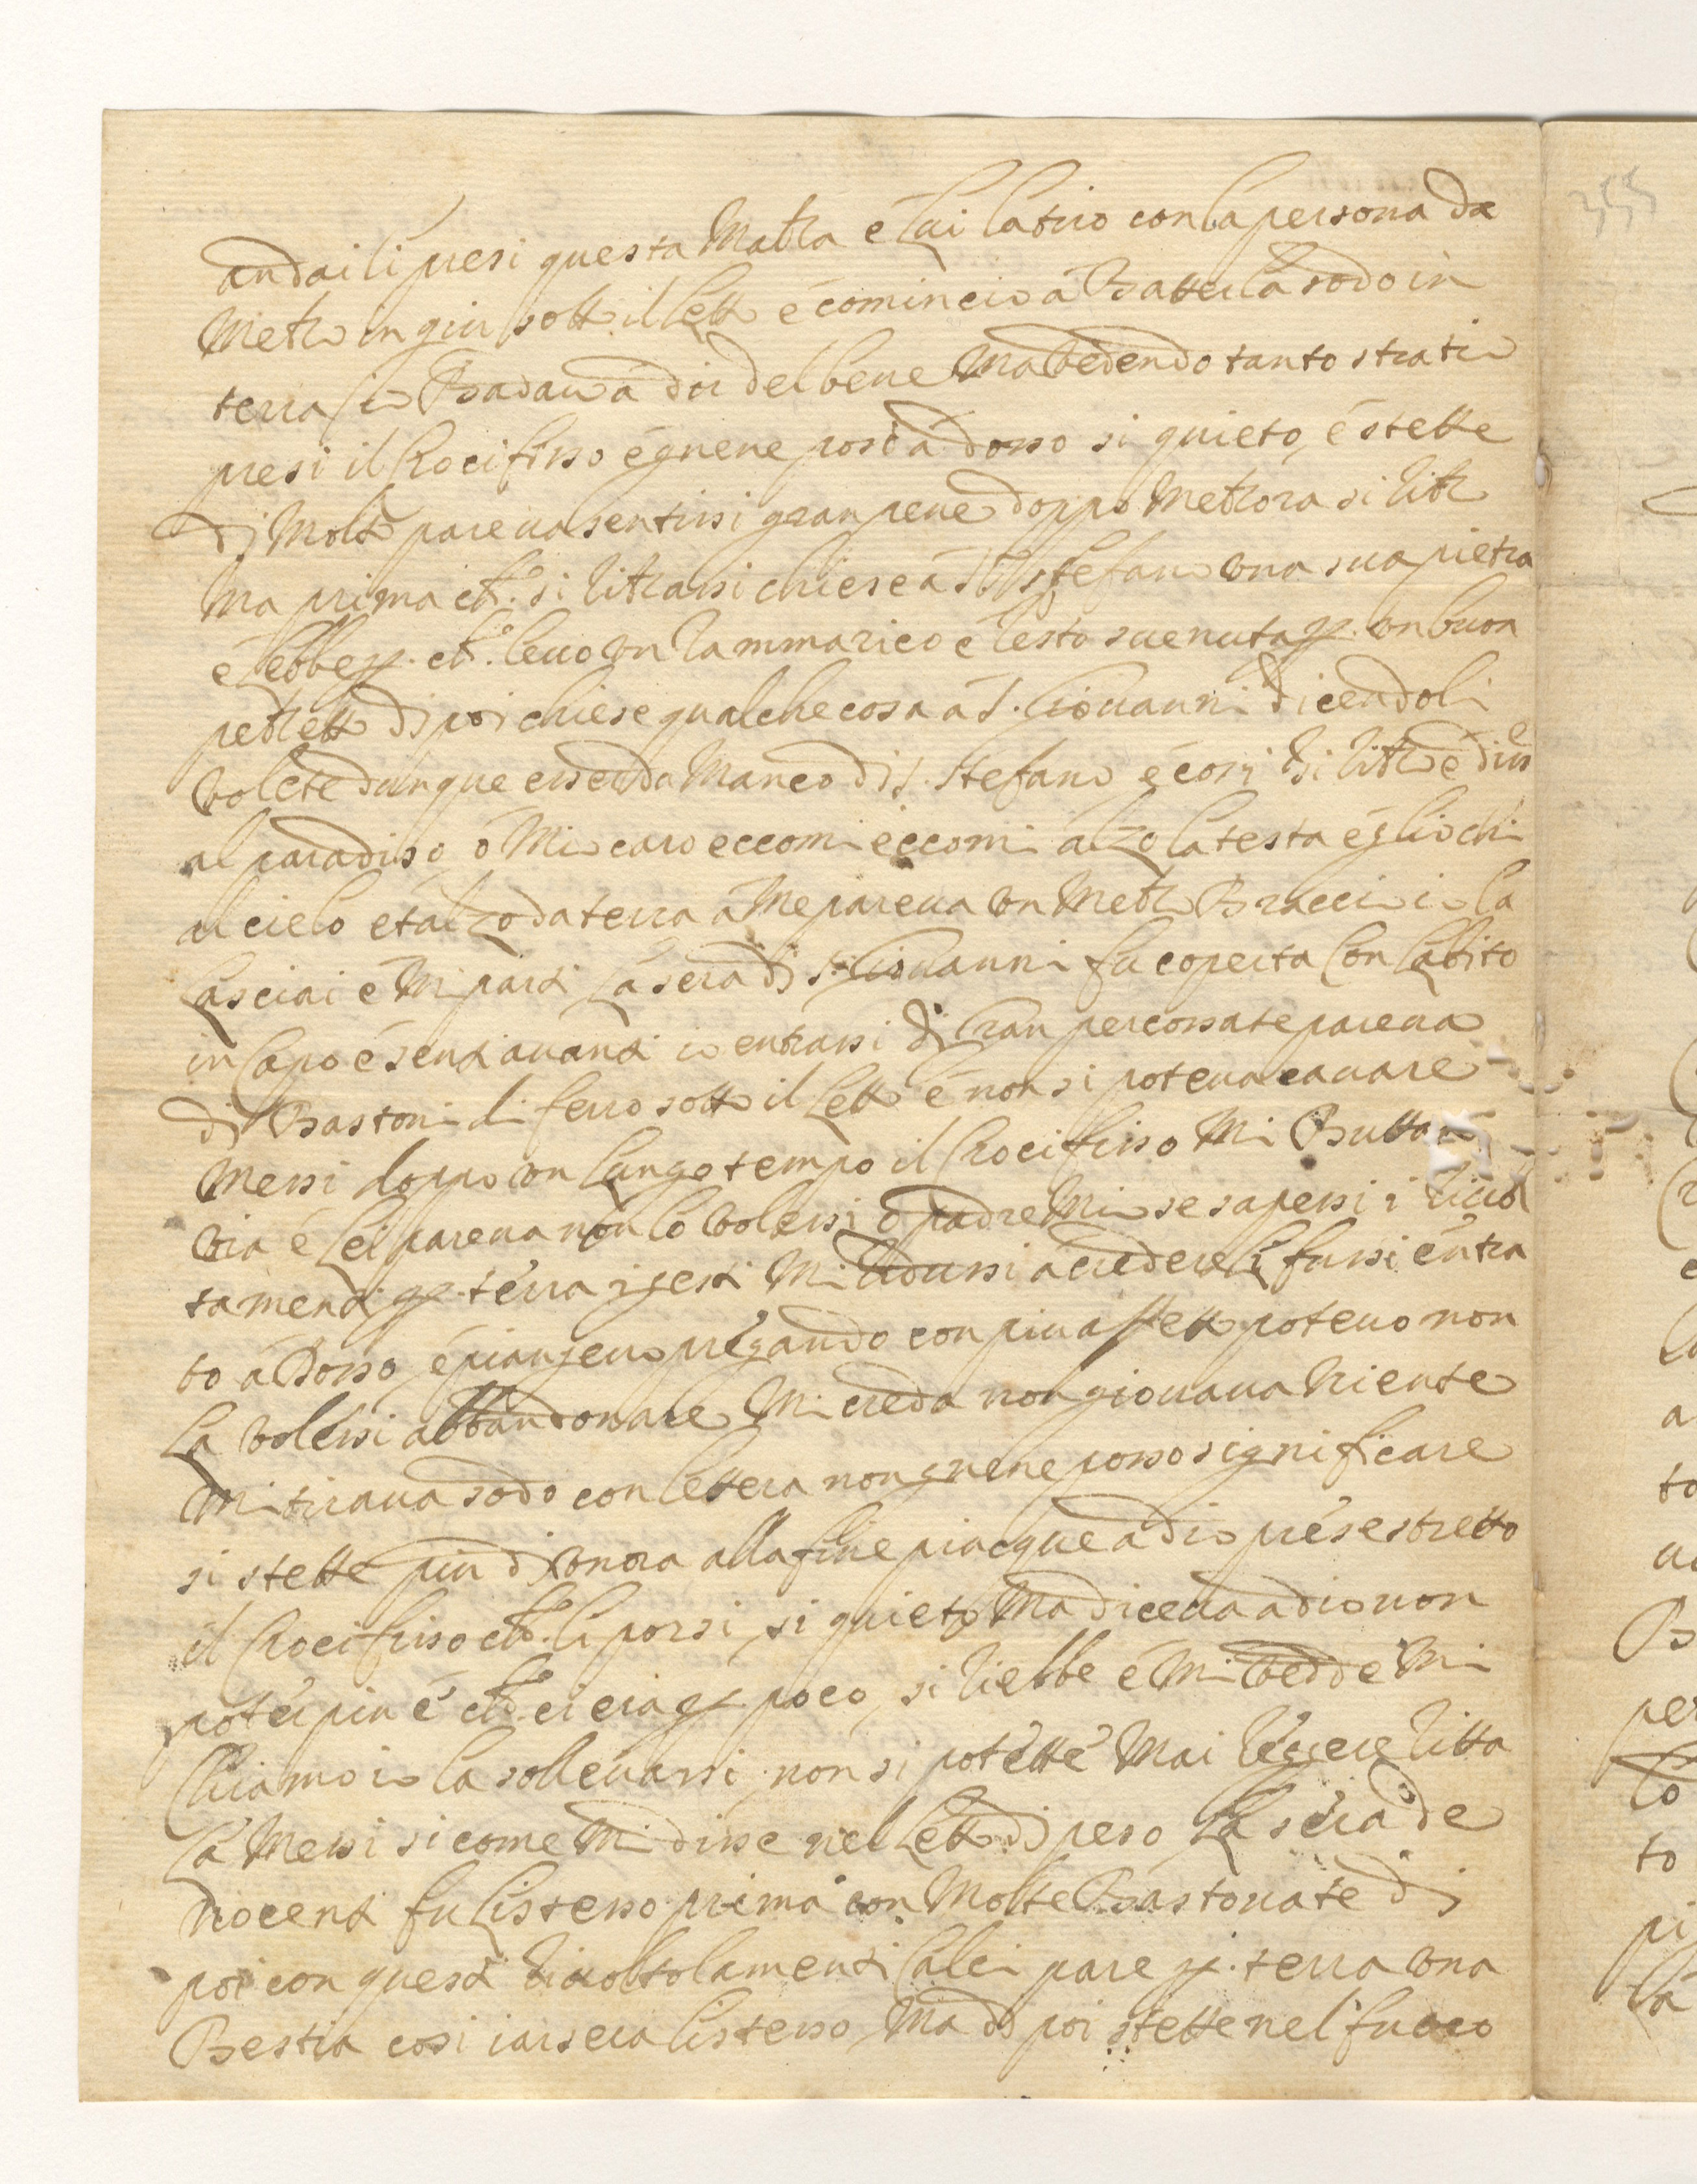 355
andai lì presi questa Matta e Lui la tiro con la persona da
Metà in giu sott il Lett e comincio a Batterla sodo in
terra io Badavo a dir del bene Ma Vedendo tanto stratio
presi il Crocifisso é gnene posi a dosso si quieto, é stette
di Molto pareva sentissi gran pene doppo Mezzora si
Ma prima che si chiese á S. Stefano una sua pietra
é Lebbe p. che levo un Rammarico e resto svenuta p. un buon
pezzett di poi chiese qualche cosa a S. Giovanni dicendoli
volete dunque esser da Manco di S. Stefano é cosi si é disse
al paradiso ó Mio caro eccomi eccomi alzo la testa é gliochi
al cielo et alzo da terra a Me pareva un Mezzo Braccio io la
Lasciai e Mi parti La sera di S. Giovanni fu coperta Con Labito
in Capo é senti avanti io entrassi di Gran percossate pareva
di Bastoni di ferro sott il Lett é non si poteva cavare
Messi doppo un Lungo tempo il Crocifisso Mi Butto
via é Lei pareva non lo volessi ó padre Mio se sapessi i
tamenti p. terra i gesti Mi Ridussi a credere li fussi entra
to á Dosso é piangevo pregando con piu affett potevo non
La volessi abbandonare Mi creda non giovava Niente
Mi tirava sodo con lettera non gnene posso significare
si stette piu di unora alla fine piacque a dio prese stretto
il Crocifisso che li porsi, si quieto Ma diceva a dio non
poter piu é che ci era p. poco, si riebbe é Mi vedde Mi
Chiamo io la sollevassi non si potette Mai reggere ritta
La Messi si come Mi disse nel Lett di peso La sera de
Nocenti fu Listesso prima con Molte Bastonate di
poi con questi rivoltolamenti Calci pare p. terra una
Bestia cosi iarsera Listesso Ma di poi stette nel fuoco